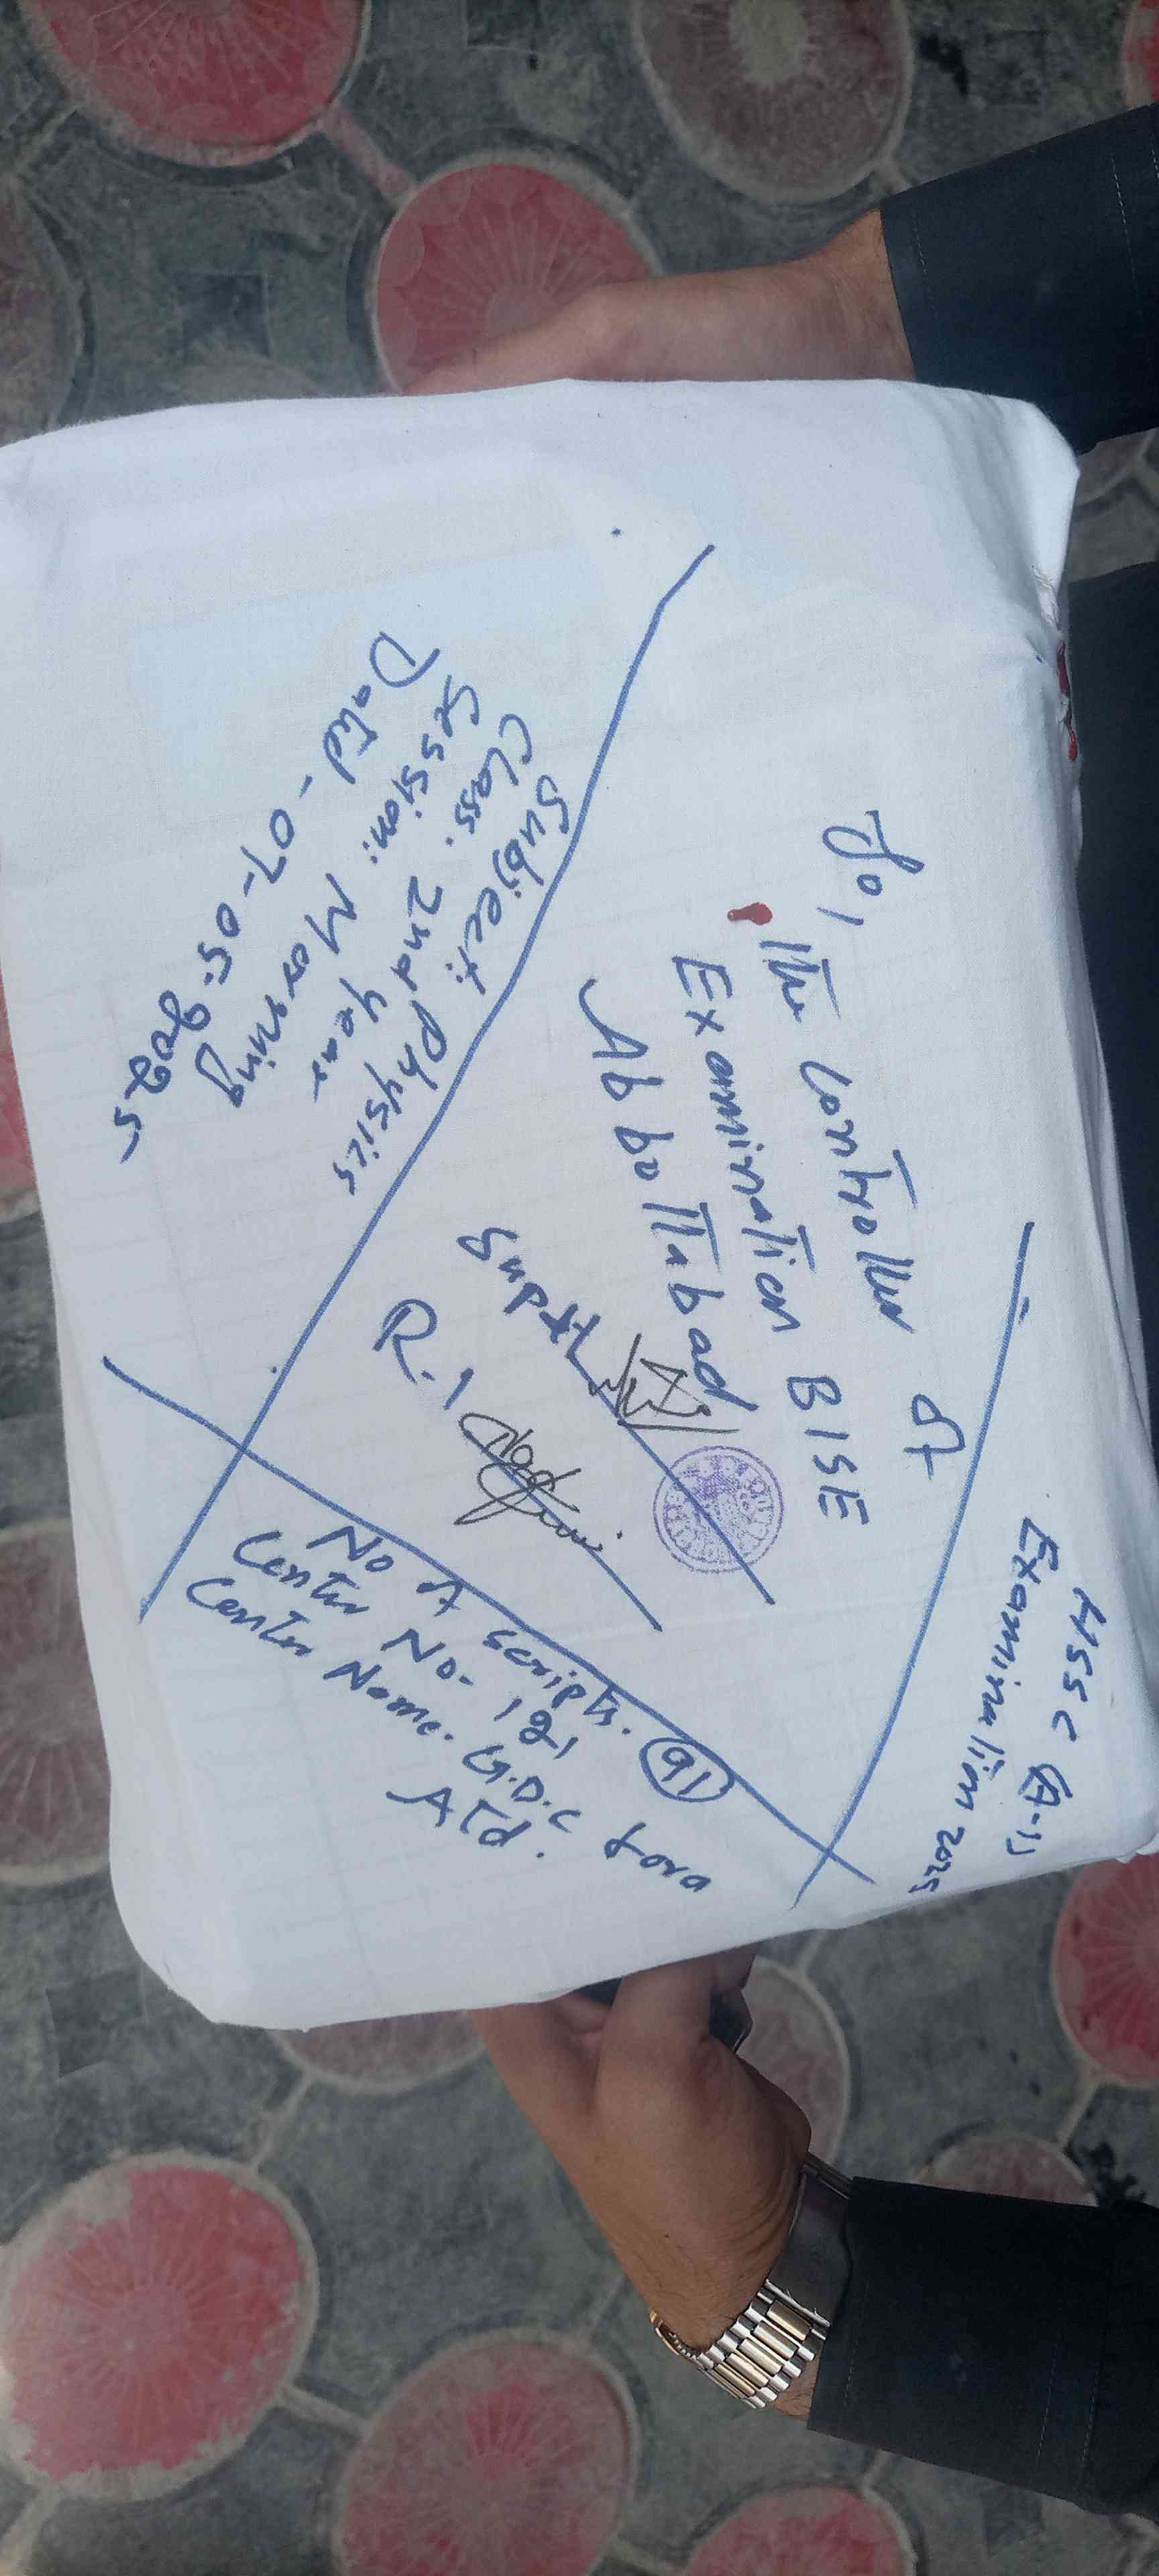 HSSC (A-1)
Examination 2025
To,
The Controller of
Examination BISE
Abbottabad
Supdt
R.I
Subject. Physics
Class. 2nd year
Session: Morning
Dated - 07-05-2025
No of scripts. 91
Centre No- 121
Centre Name. G.D.C
Atd.